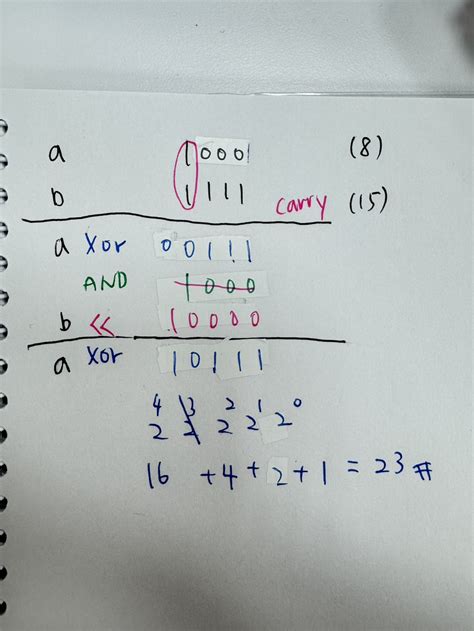 a 1000 (8)
b 1111 carry (15)
a Xor 00111
AND 1000
b << 10000
a Xor 10111
2⁴ 2³ 2² 2¹ 2⁰
16 +4+2+1 = 23 #